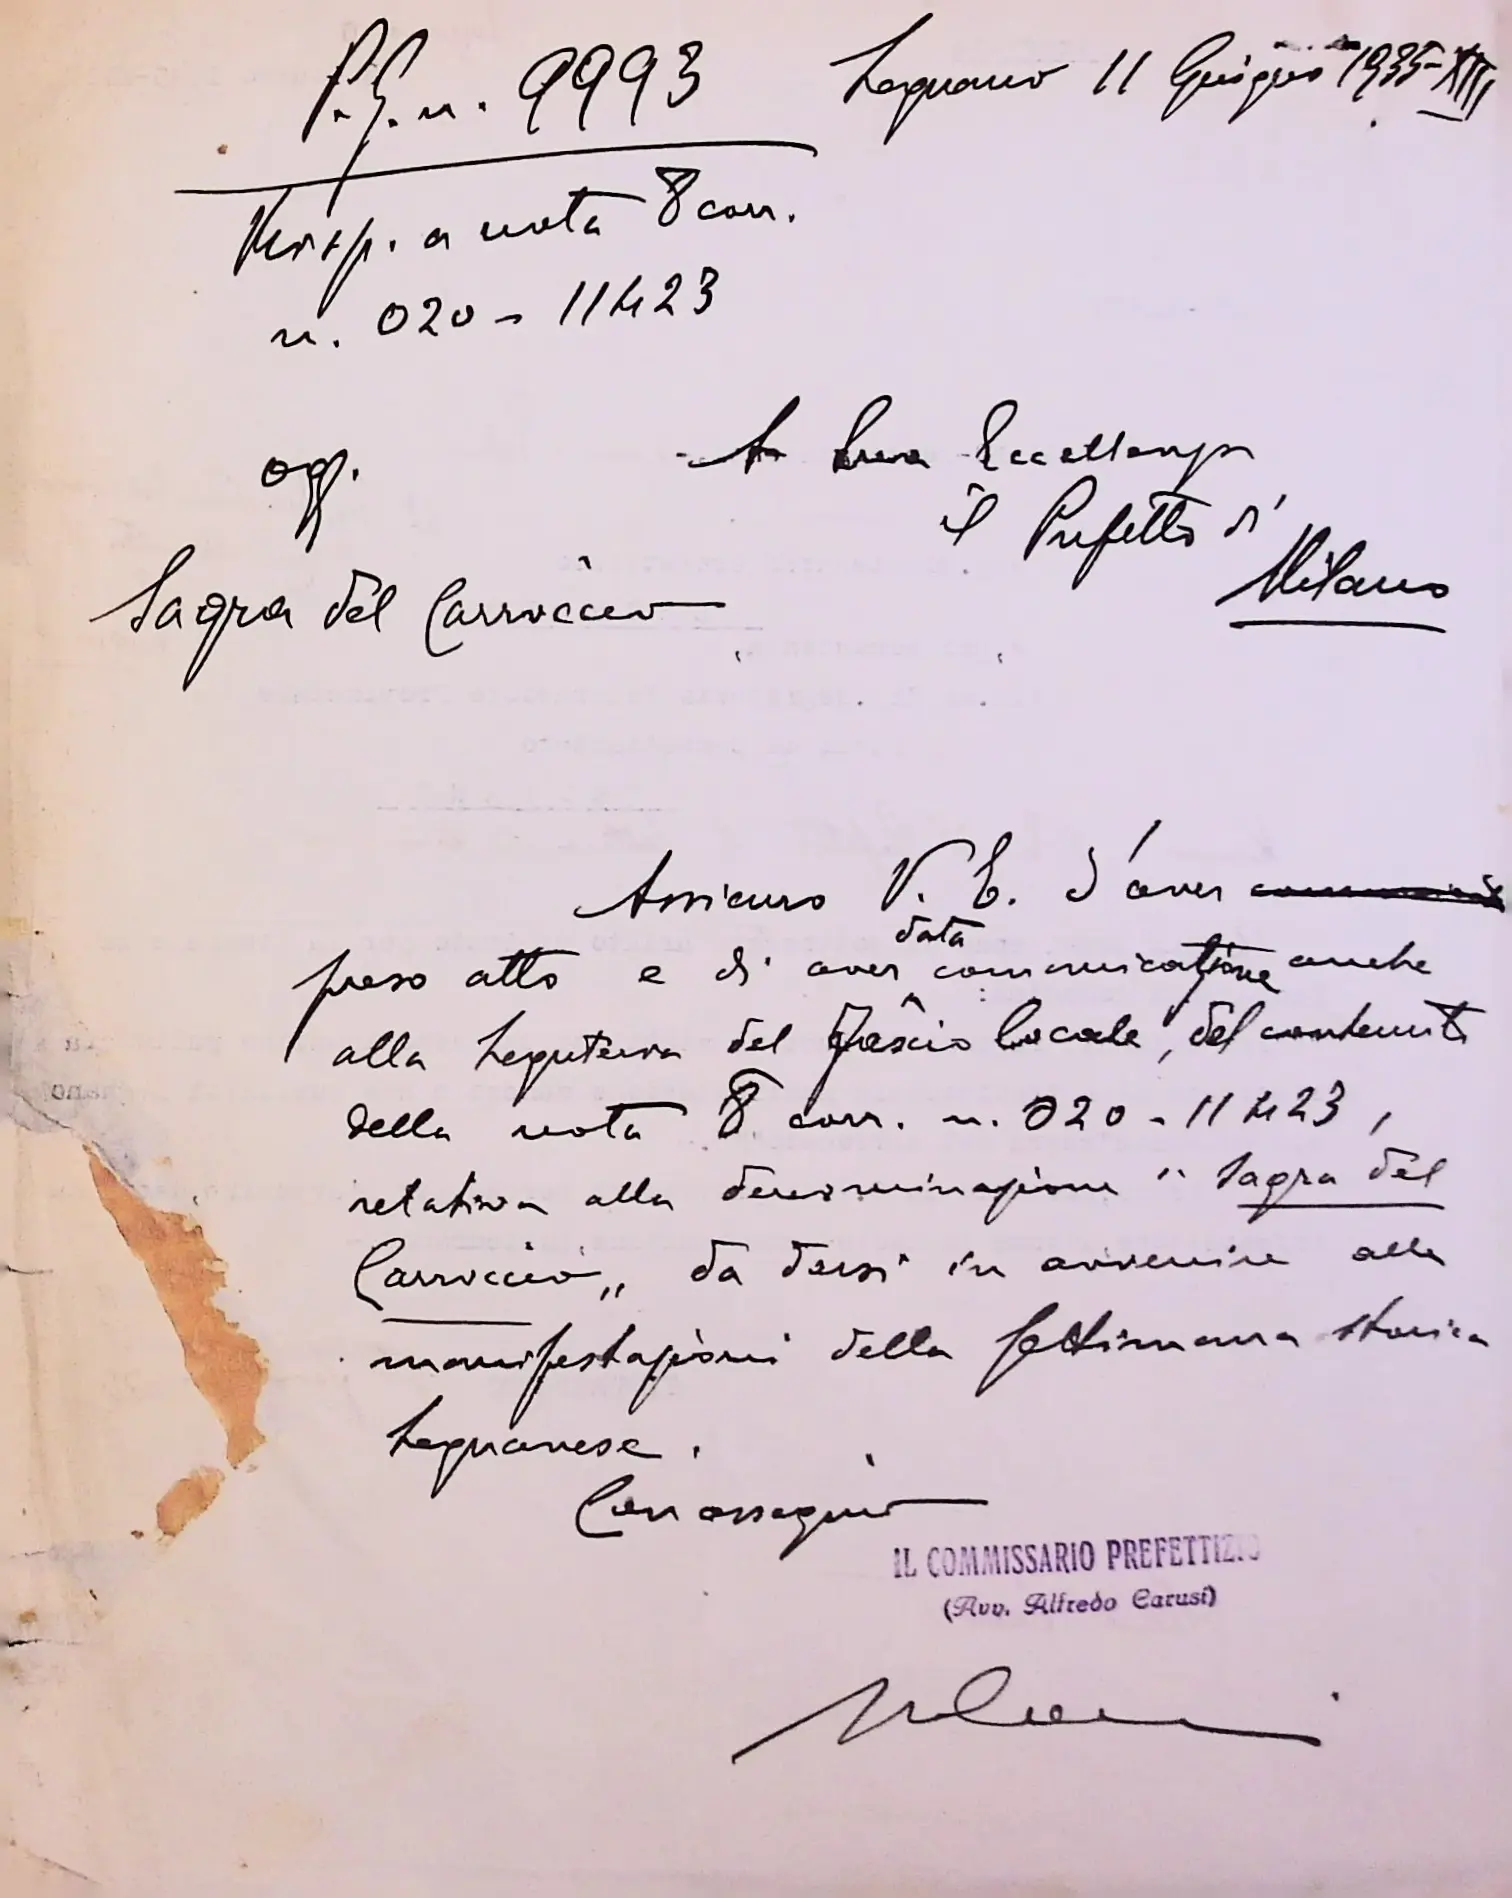 P.G. n. 9993
Legnano 11 Giugno 1935-XIII
Risp. a nota 8 corr.
n. 020 - 11423
A Sua Eccellenza
il Prefetto di
Milano
ogg.
Sagra del Carroccio
Assicuro V. E. d'aver
preso atto e di aver data comunicazione anche
alla Segreteria del Fascio locale, del contenuto
della nota 8 corr. n. 020 - 11423,
relativa alla denominazione "Sagra del
Carroccio" da darsi in avvenire alle
manifestazioni della Settimana storica
Legnanese.
Con ossequio
IL COMMISSARIO PREFETTIZIO
(Avv. Alfredo Carusi)